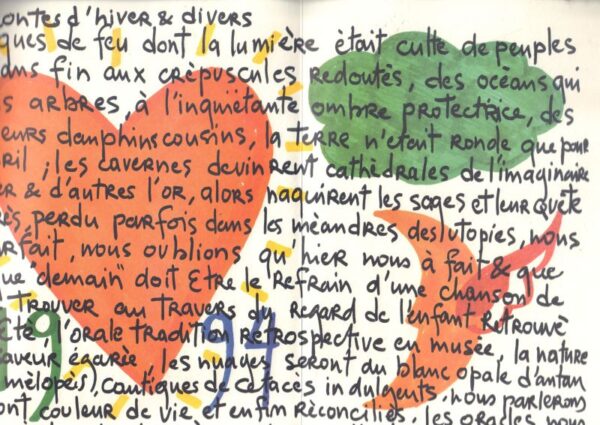 ontes d'hiver & divers
ques de feu dont la lumière ètait culte de peuples
ans fin aux crèpuscules redoutès, des ocèans qui
s arbres, à l'inquiètante ombre protectrice, des
eurs dauphins cousins, la terre n'etait ronde que pour
ril ; les cavernes devinrent cathèdrales de l'imaginaire
er & d'autres l'or, alors naquirent les sages et leur quète
rès, perdu parfois dans les mèandres des utopies, nous
rfait, nous oublions qu'hier nous à fait & que
ue demain" doit Etre le refrain d'une chanson de
à trouver au travers du regard de l'enfant retrouvè
Etè l'orale tradition rètrospective en musèe, la nature
aveur ègarèe, les nuages seront du blanc opale d'antan
mèlopès), cantiques de cètacès indulgents, nous parlerons
ont couleur de vie et enfin rèconciliès, les oracles nous
1994